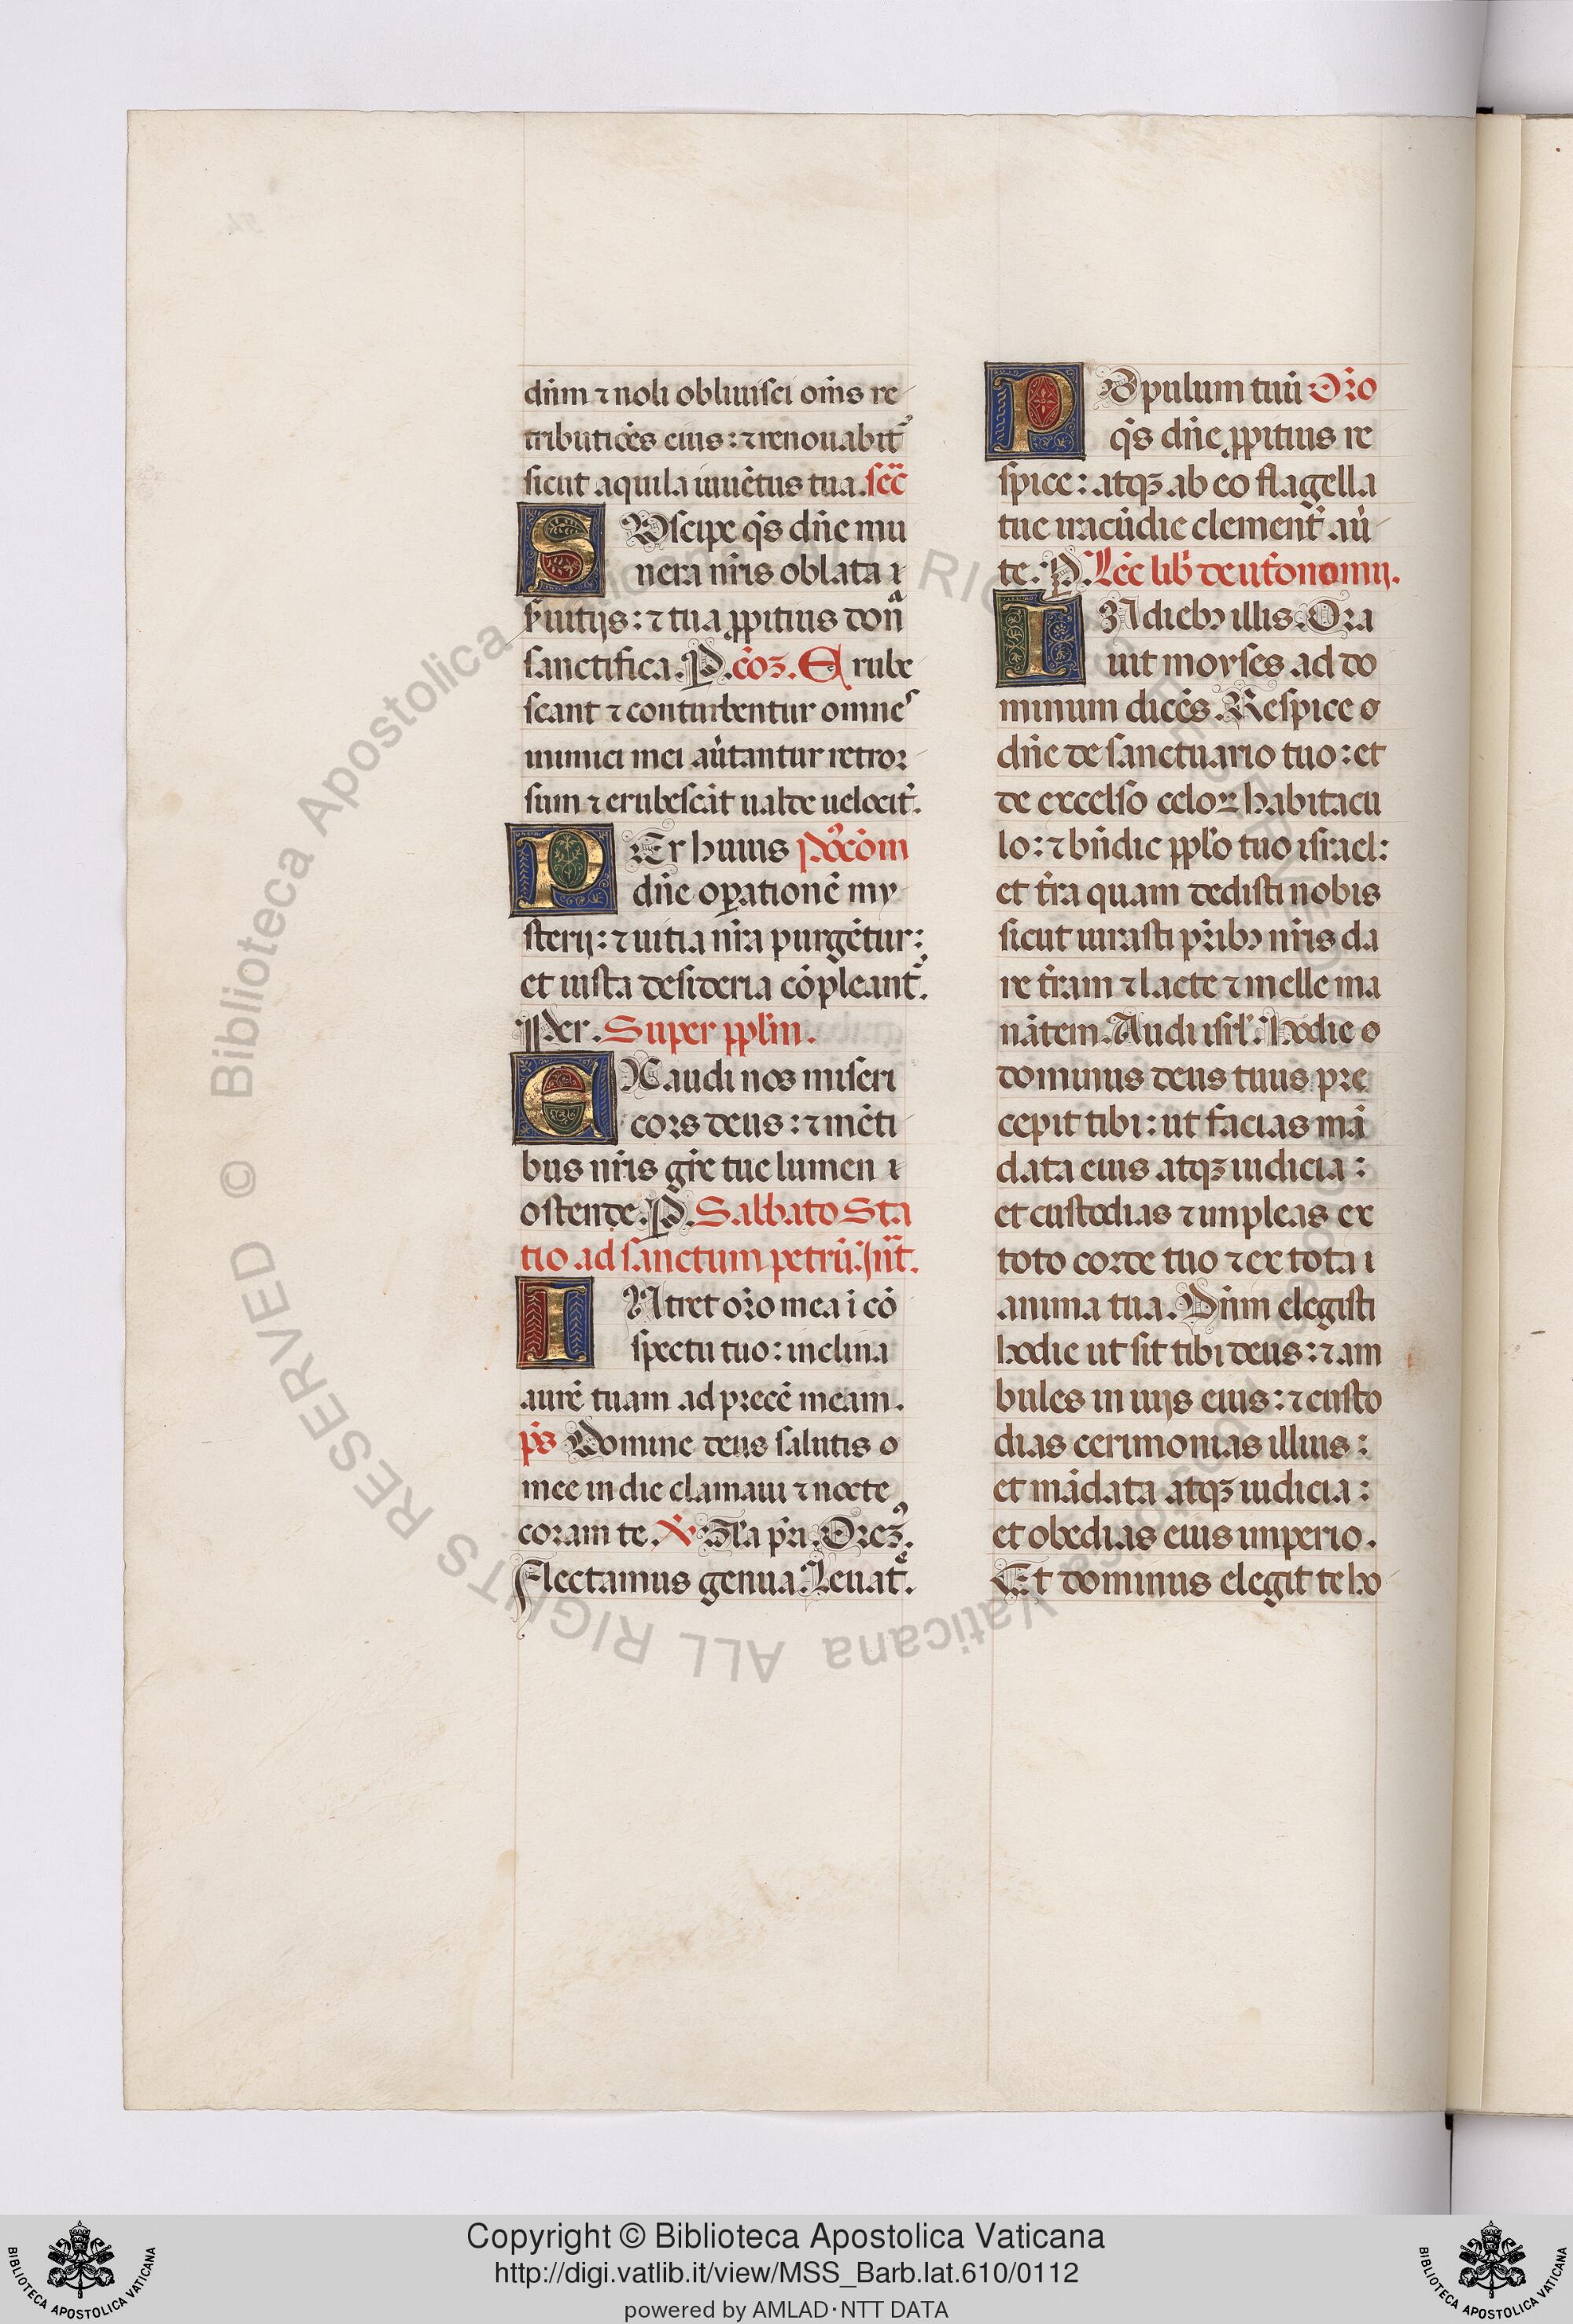 dñm ⁊ noli obliuisci om̃s re
tributiões eius: ⁊ renouabit᷑
sicut aquila iuuẽtus tua. sẽc
SUscipe q̃s dñe mu
nera nr̃is oblata ĩ
s̃uitijs: ⁊ tua ꝓpitius dona
sanctifica. P. cõꝫ. Erube
scant ⁊ conturbentur omnes
inimici mei aũtantur retror
sum ⁊ erubescãt ualde uelocit᷑.
PEr huius Postcõm
dñe oꝑationẽ my
sterij: ⁊ uitia nr̃a purgẽtur:
et iusta desideria cõpleant᷑.
Per. Super ppl̃m.
EXaudi nos miseri
cors deus: ⁊ mẽti
bus nr̃is gr̃e tue lumen
ostende. P. Sabbato Sta
tio ad sanctum petrũ. Int̃.
INtret or̃o mea ĩ cõ
spectu tuo: inclina
aurẽ tuam ad precẽ meam.
p̃s Domine deus salutis
mee in die clamaui ⁊ nocte
coram te. ℣. Gl̃a pr̃i. Orem᷒.
Flectamus genua. Leuate.
POpulum tuũ Or̃o
q̃s dñe ꝓpitius re
spice: atqꝫ ab eo flagella
tue iracũdie clement᷑ aũ
te. P. Lẽc lib̃ deut̃onomij.
IN diebꝫ illis. Ora
uit moyses ad do
minum dicẽs. Respice
dñe de sanctuario tuo: et
de excelso celoꝝ habitacu
lo: ⁊ bñdic ppl̃o tuo israel:
et t̃ra quam dedisti nobis
sicut iurasti pr̃ibꝫ nr̃is da
re t̃ram ⁊ lacte ⁊ melle ma
nãtem. Audi isrl̃. Hodie
dominus deus tuus pre
cepit tibi: ut facias mã
data eius atqꝫ iudicia:
et custodias ⁊ impleas ex
toto corde tuo ⁊ ex tota
anima tua. Dñm elegisti
hodie ut sit tibi deus: ⁊ am
bules in uijs eius: ⁊ custo
dias cerimonias illius:
et mãdata atqꝫ iudicia:
et obedias eius imperio.
Et dominus elegit te ho
© Biblioteca Apostolica Vaticana ALL RIGHTS RESERVED
BIBLIOTECA APOSTOLICA VATICANA
Copyright © Biblioteca Apostolica Vaticana
http://digi.vatlib.it/view/MSS_Barb.lat.610/0112
powered by AMLAD·NTT DATA
BIBLIOTECA APOSTOLICA VATICANA